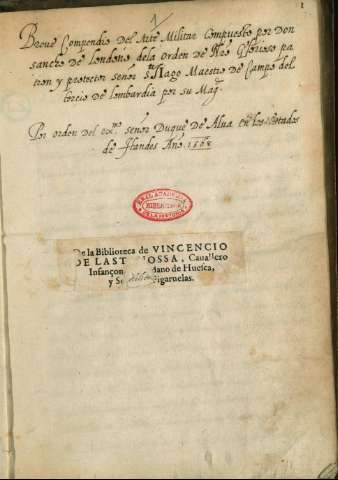 1
Breue Compendio Del Arte Militar Compuesto por Don
sancho de londoño dela orden de Nro Glorioso pa
tron y protector señor stiago Maestro De Campo del
tercio de lombardia por su Magd
Por orden del exmo señor Duque De Alua en los estados
de flandes Año 1568
REAL ACADEMIA
BIBLIOTECA
DE LA HISTORIA
De la Biblioteca de VINCENCIO
DE LAST OSSA, Cauallero
Infançon dano de Huesca,
y Se Figaruelas.